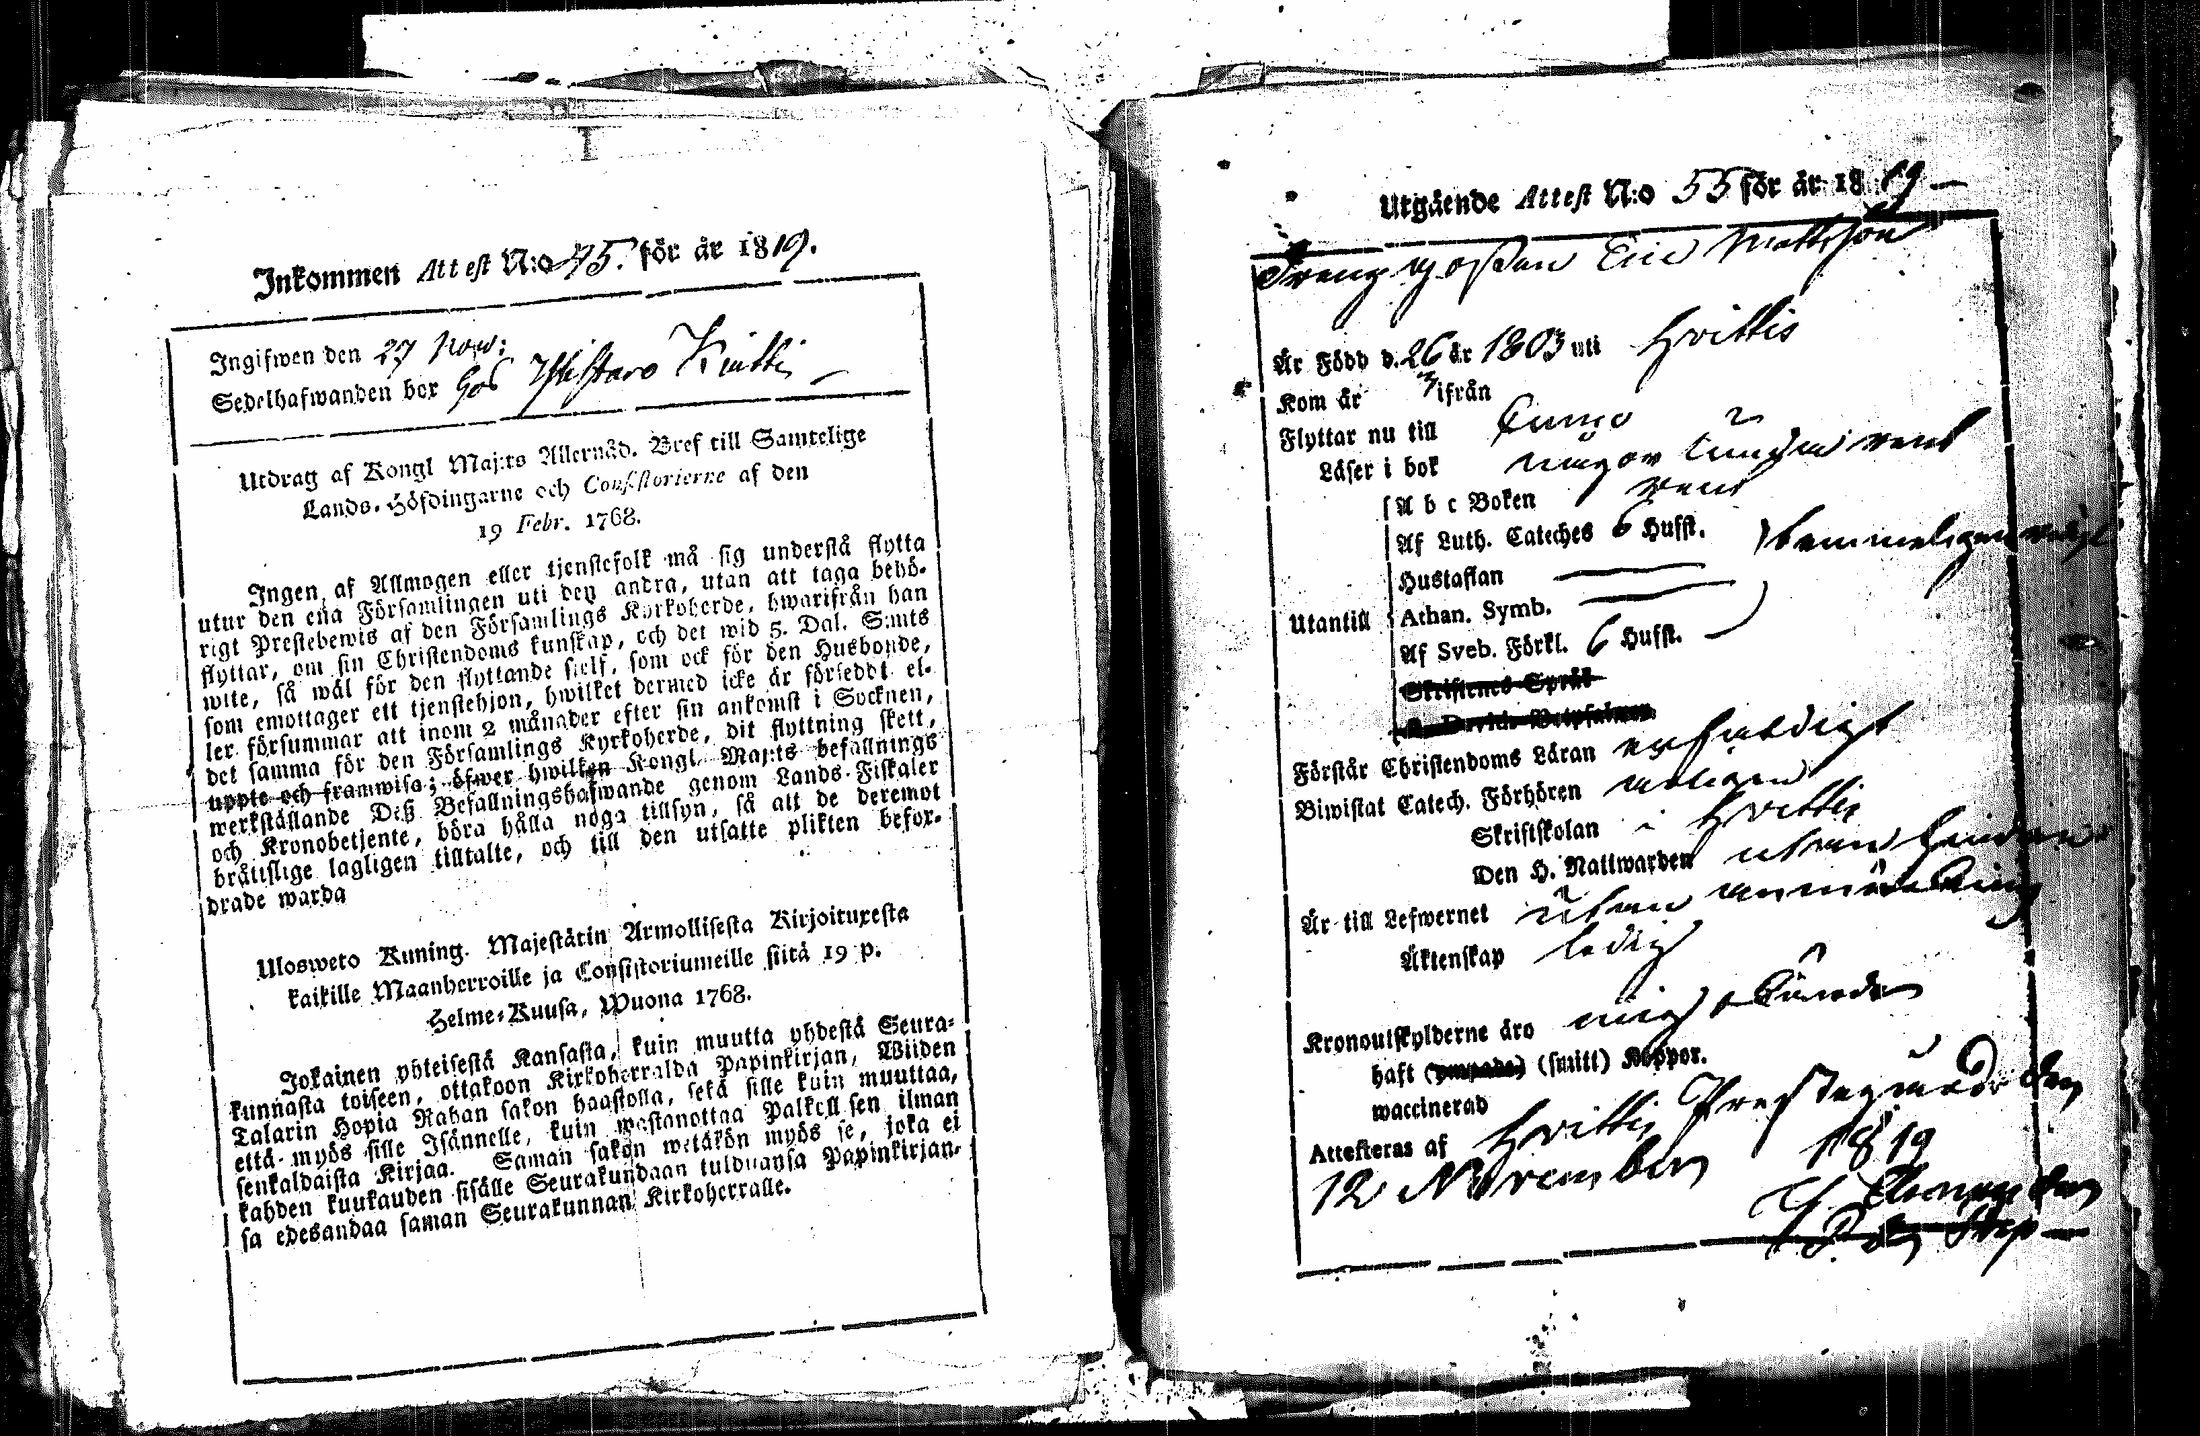 Inkommen Attest N:o 45. för år 1819.
Ingifwen den 27 Nov:
Sedelhafwanden bor hos
Utdrag af Kongl Maj:ts Allernåd. Bref till Samtelige
Lands-Höfdingarne och Consistorierne af den
19 Febr. 1768.
Ingen af Allmogen eller tjenstefolk må sig understå flytta
utur den ena Församlingen uti den andra, utan att taga behö-
rigt Prestebewis af den Församlings Kyrkoherde, hwarifrån han
flyttar, om sin Christendoms kunskap, och det wid 5. Dal. S:mts
wite, så wäl för den flyttande sielf, som ock för den Husbonde,
som emottager ett tjenstehjon, hwilket dermed icke är förseddt el-
ler försummar att inom 2 månader efter sin ankomst i Socknen,
det samma för den Församlings Kyrkoherde, dit flyttning skett,
uppte och framwisa; öfwer hwilken Kongl. Maj:ts befallnings
werkställande Deß Befallningshafwande genom Lands-Fiskaler
och Kronobetjente, böra hålla noga tillsyn, så att de deremot
bråtislige lagligen tilltalte, och till den utsatte plikten befor-
drade warda
Ulosweto Kuning. Majestätin Armollisesta Kirjoituxesta
kaikille Maanherroille ja Consistoriumeille siitä 19 p.
Helme-Kuusa, Wuona 1768.
Jokainen yhteisestä Kansasta, kuin muutta yhdestä Seura-
kunnasta toiseen, ottakoon Kirkoherralda Papinkirjan, Wiiden
Talarin Hopia Rahan sakon haastolla, sekä sille kuin muuttaa,
että myös sille Isännelle, kuin wastanottaa Palkollisen ilman
senkaldaista Kirjaa. Saman sakon wetäkön myös se, joka ei
kahden kuukauden sisälle Seurakundaan tulduansa Papinkirjan-
sa edesandaa saman Seurakunnan Kirkoherralle.
Utgående Attest N:o 55 för år 1819
Drengegossen Eric Mattsson
Är Född d. 26/3 år 1803 uti Hvittis
Kom år ifrån
Flyttar nu till Cumo
Läser i bok
A b c Boken rent
Af Luth. Cateches 6 Hufst.
Hustaflan
Utantill Athan. Symb.
Af Sveb. Förkl. 6 Hufst.
Skriftenes Språk
Förstår Christendoms Läran enfaldigt
Biwistat Catech. Förhören
Skriftskolan i Hvittis
Den H. Nattwarden utan hinder
Är till Lefwernet utan anmärkning
Äktenskap ledig
Kronoutskylderne äro
haft (ympade) (smitt) Koppor.
waccinerad
Attesteras af Hvittis Prestegård den
12 November 1819